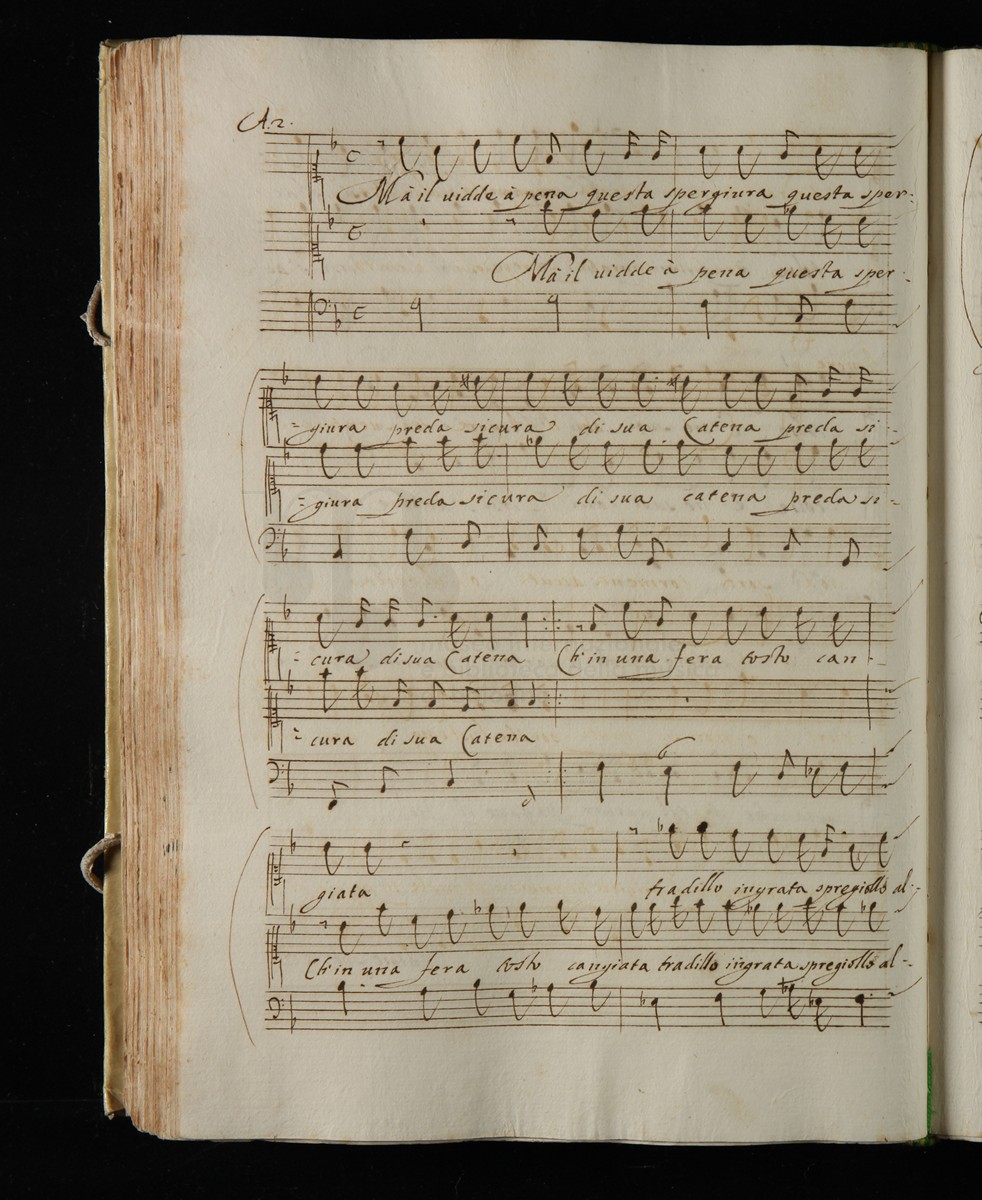 A. 2.
Mà il uidde à pena questa spergiura questa sper-
Mà il uidde à pena questa sper-
-giura preda sicura di sua Catena preda si-
-giura preda sicura di sua catena preda si-
-cura di sua Catena Ch'in una fera tosto can-
-cura di sua Catena
giata tradillo ingrata spregiollo al-
Ch'in una fera tosto cangiata tradillo ingrata spregiollo al-